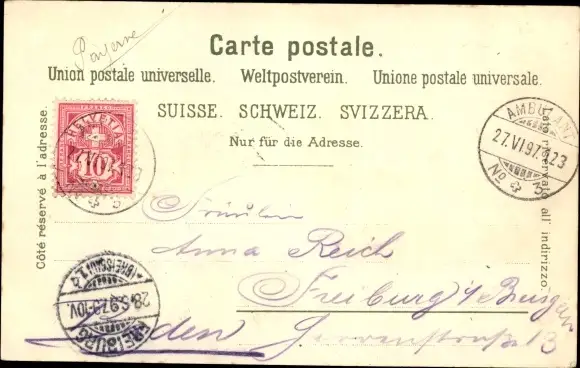 Payerne
Carte postale.
Union postale universelle. Weltpostverein. Unione postale universale.
SUISSE. SCHWEIZ. SVIZZERA.
Nur für die Adresse.
Côté réservé à l'adresse.
Lato riservato all' indirizzo.
HELVETIA
10
AMBULANT
27.VI.97.
23
No 4
Fräulein
Anna Reich
Freiburg i/Breisgau
Baden
13
FREIBURG
(BREISGAU)
28.6.97.
10V.